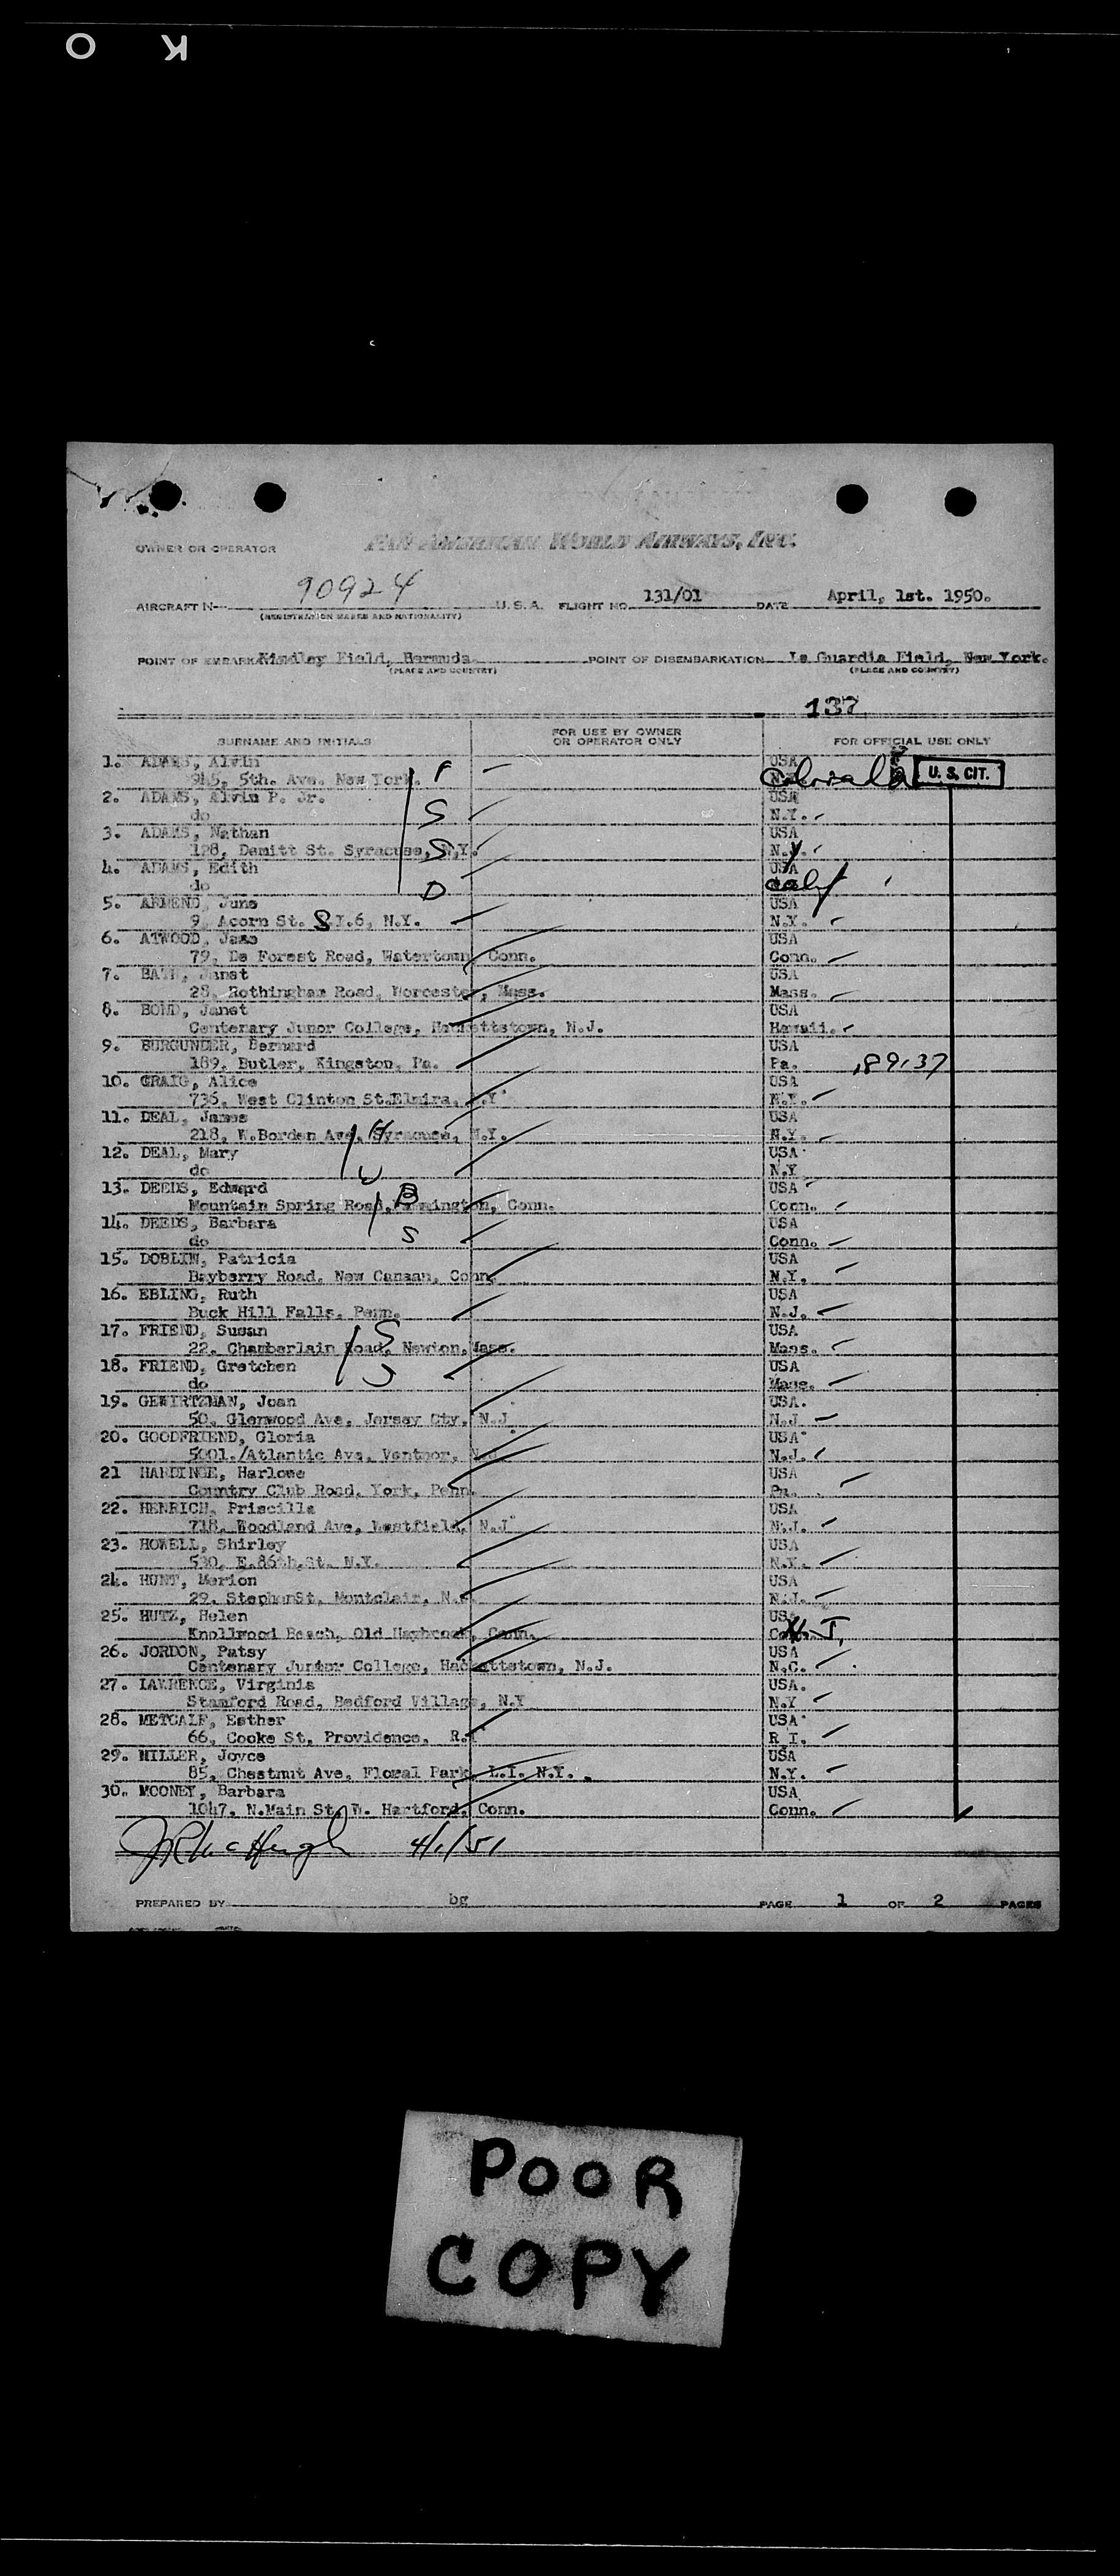 O K
OWNER OR OPERATOR PAN AMERICAN WORLD AIRWAYS, INC.
AIRCRAFT N 90924 U.S.A. FLIGHT NO. 131/01 DATE April, 1st. 1950.
(REGISTRATION MARKS AND NATIONALITY)
POINT OF EMBARK Kindley Field, Bermuda. POINT OF DISEMBARKATION La Guardia Field, New York.
(PLACE AND COUNTRY) (PLACE AND COUNTRY)
137
SURNAME AND INITIALS FOR USE BY OWNER OR OPERATOR ONLY FOR OFFICIAL USE ONLY
1. ADAMS, Alvin USA
945, 5th. Ave. New York. F Colorado U. S. CIT.
2. ADAMS, Alvin P. Jr. USA
do S N.Y.
3. ADAMS, Nathan USA
128, Demitt St. Syracuse, N.Y. S N.Y.
4. ADAMS, Edith USA
do D Calif
5. ARMEND, June USA
9, Acorn St. S.I.6, N.Y. N.Y.
6. ATWOOD, Jean USA
79, De Forest Road, Watertown, Conn. Conn.
7. Janet USA
28, Rothingham Road, Worcester, Mass. Mass.
8. BOND, Janet USA
Centenary Junor College, Hackettstown, N.J. Hawaii.
9. BURGUNDER, Bernard USA
189, Butler, Kingston, Pa. Pa. 189,37
10. CRAIG, Alice USA
736, West Clinton St.Elmira, N.Y N.Y.
11. DEAL, James USA
218, W.Borden Ave, Syracuse, N.Y. H N.Y.
12. DEAL, Mary USA
do W N.Y
13. DEEDS, Edward USA
Mountain Spring Road, Farmington, Conn. B Conn.
14. DEEDS, Barbara USA
do S Conn.
15. DOBLIN, Patricia USA
Bayberry Road, New Canaan, Conn. N.Y.
16. EBLING, Ruth USA
Buck Hill Falls, Penn. N.J.
17. FRIEND, Susan USA
22, Chamberlain Road, Newton, Mass. S Mass.
18. FRIEND, Gretchen USA
do S Mass.
19. GEWIRTZMAN, Joan USA.
50, Glenwood Ave, Jersey Cty, N.J N.J
20. GOODFRIEND, Gloria USA
5001./Atlantic Ave, Ventnor, N.J N.J.
21 HARDINGE, Harlowe USA
Country Club Road, York, Penn. Pa.
22. HENRICH, Priscilla USA
718, Woodland Ave, Westfield, N.J N.J.
23. HOWELL, Shirley USA
530, E.86th.St. N.Y. N.Y.
24. HUNT, Marion USA
29, StephenSt, Montclair, N.J. N.J.
25. HUTZ, Helen USA
Knollwood Beach, Old Saybrook, Conn. N.J.
26. JORDON, Patsy USA
Centenary Junior College, Hackettstown, N.J. N.C.
27. LAWRENCE, Virginia USA.
Stamford Road, Bedford Village, N.Y N.Y
28. METCALF, Esther USA
66, Cooke St, Providence, R.I R I.
29. MILLER, Joyce USA
85, Chestnut Ave, Floral Park, L.I. N.Y. N.Y.
30. MOONEY, Barbara USA
1047, N.Main St, W. Hartford, Conn. Conn.
J R McHugh 4/1/51
PREPARED BY bg PAGE 1 OF 2 PAGES
POOR
COPY